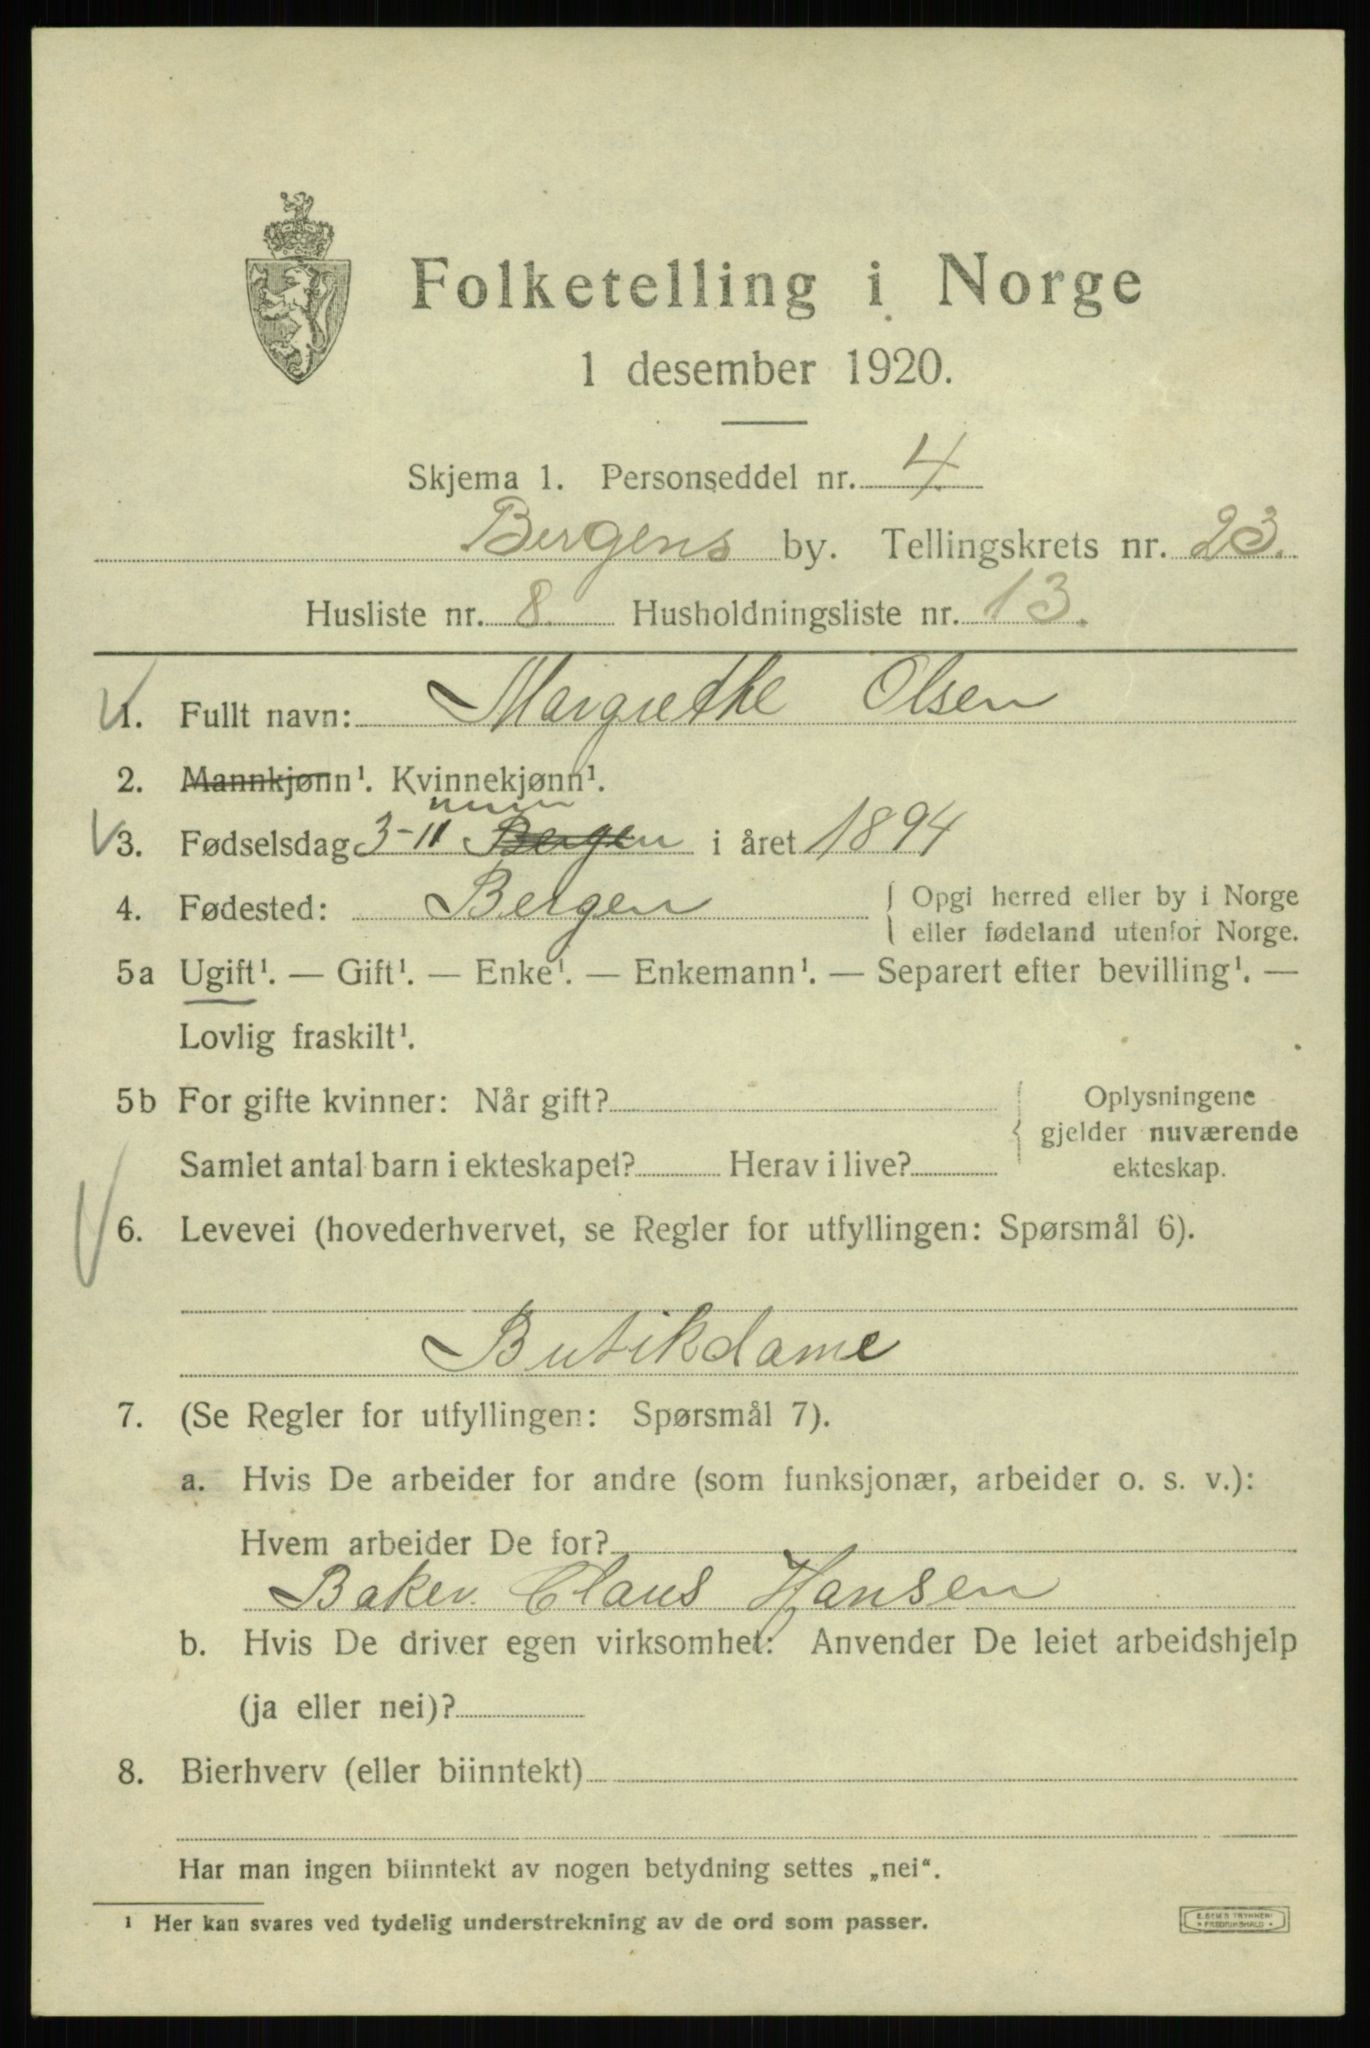 Folketelling i Norge
1 desember 1920.
Skjema 1. Personseddel nr. 4.
Bergens by. Tellingskrets nr. 23.
Husliste nr. 8. Husholdningsliste nr. 13.
1. Fullt navn: Margrethe Olsen
2. Mannkjønn¹. Kvinnekjønn¹.
3. Fødselsdag 3-11 Bergen i året 1894
4. Fødested: Bergen { Opgi herred eller by i Norge
eller fødeland utenfor Norge.
5a Ugift¹. — Gift¹. — Enke¹. — Enkemann¹. — Separert efter bevilling¹. —
Lovlig fraskilt¹.
5b For gifte kvinner: Når gift? { Oplysningene
gjelder nuværende
Samlet antal barn i ekteskapet? Herav i live? ekteskap.
6. Levevei (hovederhvervet, se Regler for utfyllingen: Spørsmål 6).
Butikdame
7. (Se Regler for utfyllingen: Spørsmål 7).
a. Hvis De arbeider for andre (som funksjonær, arbeider o. s. v.):
Hvem arbeider De for?
Baker. Claus Hansen
b. Hvis De driver egen virksomhet: Anvender De leiet arbeidshjelp
(ja eller nei)?
8. Bierhverv (eller biinntekt)
Har man ingen biinntekt av nogen betydning settes „nei“.
¹ Her kan svares ved tydelig understrekning av de ord som passer.